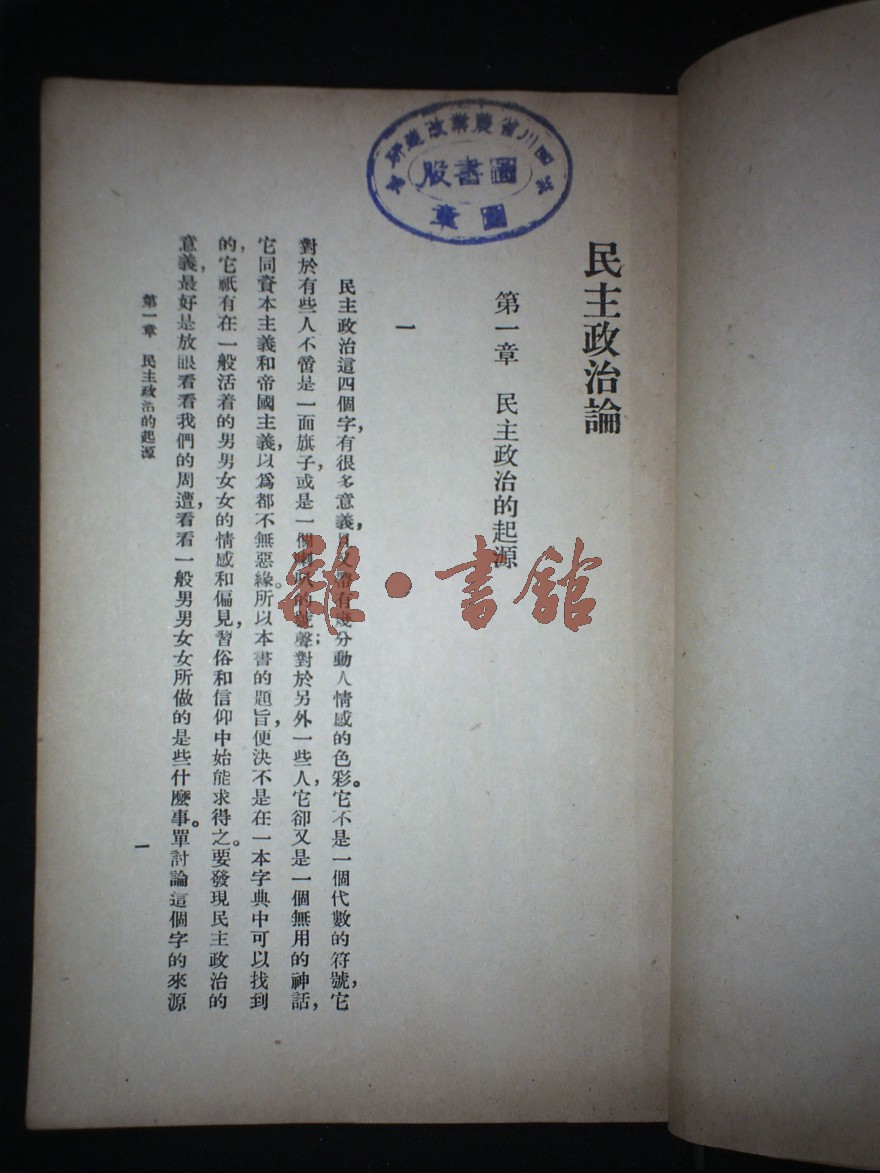 四川省農業改進所
圖書股
圖章
民主政治論
第一章　民主政治的起源
一
民主政治這四個字，有很多意義，且又帶有幾分動人情感的色彩。它不是一個代數的符號，它
對於有些人不啻是一面旗子，或是一個喇叭的號聲；對於另外一些人，它卻又是一個無用的神話，
它同資本主義和帝國主義，以爲都不無惡緣。所以本書的題旨，便決不是在一本字典中可以找到
的，它祇有在一般活着的男男女女的情感和偏見，習俗和信仰中始能求得之。要發現民主政治的
意義，最好是放眼看看我們的周遭，看看一般男男女女所做的是些什麼事。單討論這個字的來源
第一章　民主政治的起源
一
雜·書館